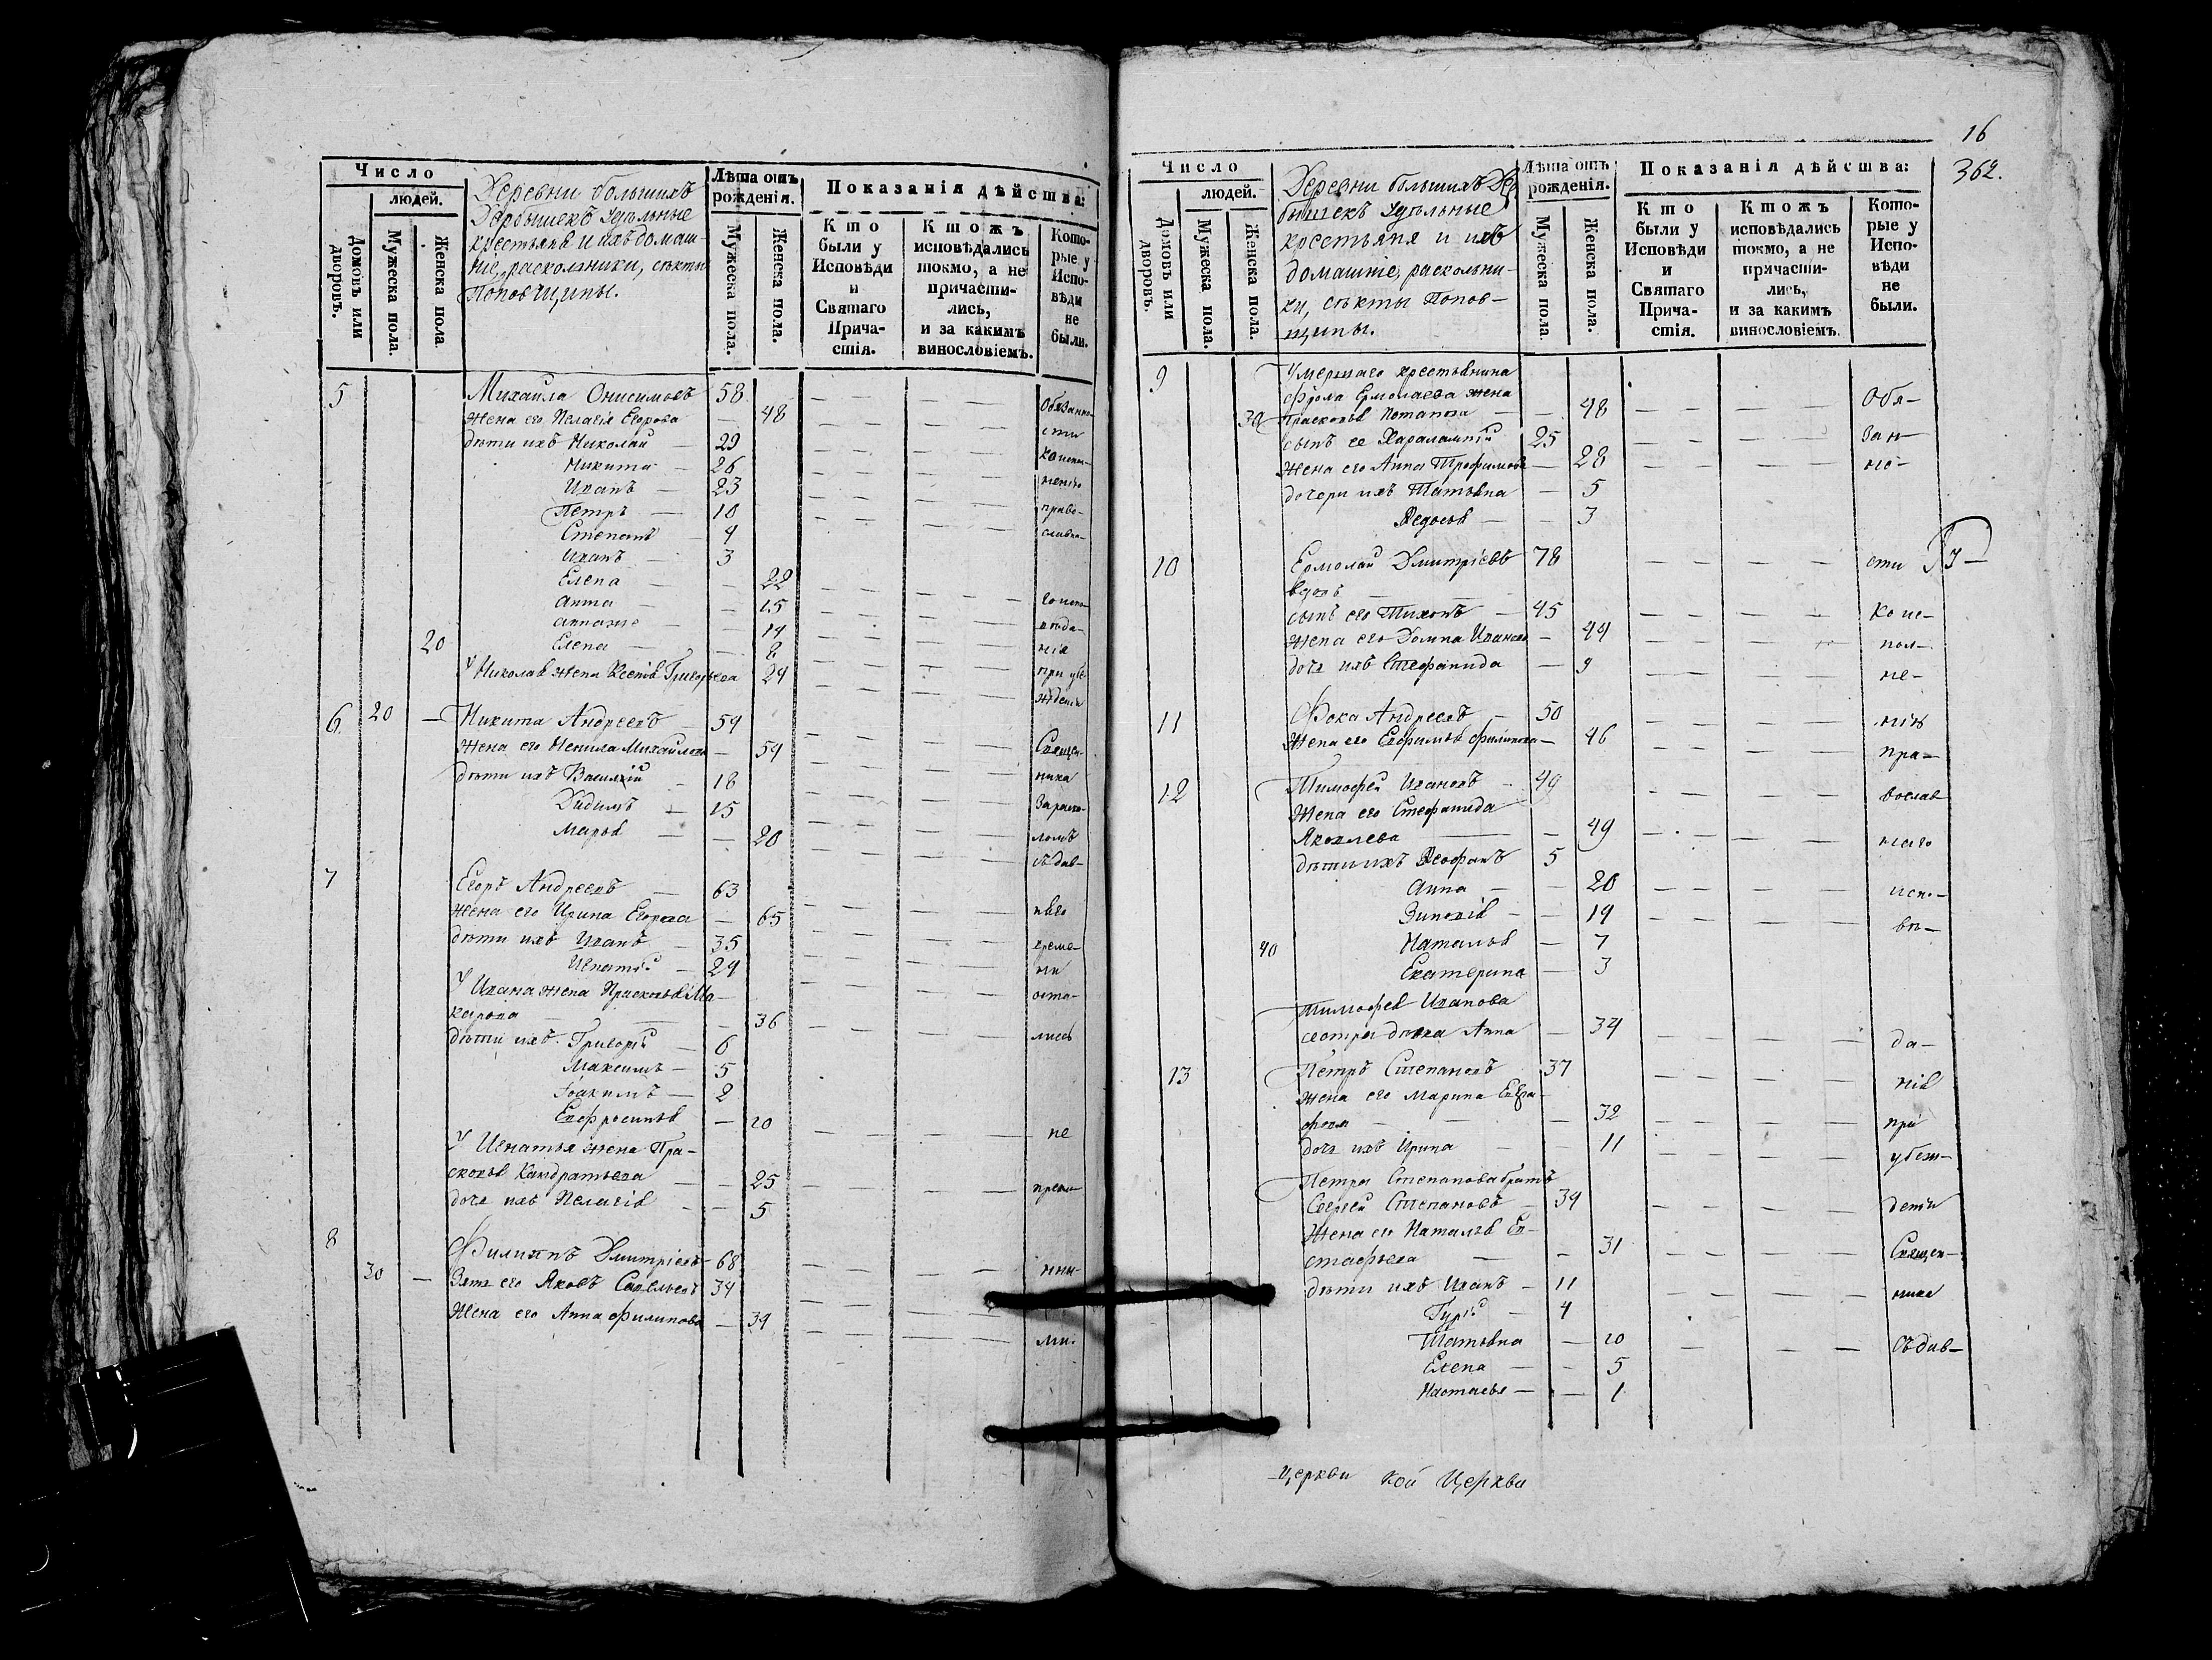 Число
людей.
Домовъ или дворовъ.
Мужеска пола.
Женска пола.
Деревни большихъ
Дербышекъ Удѣльные
крестьяне и ихъ домаш-
ніе, раскольники, секты
Поповщины.
Лѣта отъ рожденія.
Мужеска пола.
Женска пола.
Показанія дѣйства:
Кто были у Исповѣди и Святаго Прича-стія.
Ктожъ исповѣдались токмо, а не причасти-лись, и за какимъ винословіемъ.
Кото-рые у Испо-вѣди не были.
5 Михайла Онисимовъ 58
жена его Пелагія Егорова — 48 Обязанно-
дѣти ихъ Николай — 29 сти
Никита — 26
Иванъ — 23
Петръ — 10 право-
Степанъ — 4 славна-
Иванъ — 3
Елена — — 22
Анна — — 15
Аннаже — — 14
20 Елена — — 8 нія
У Николая жена Ксенія Григорьева 24 при убе-
ждени
6 20 — Никита Андреевъ — 54
Жена его Ненила Михайлова — 54 Священ-
дѣти ихъ Василій — 18 ника
Дидимъ — 15 Зараско-
Марья — — 20 ломъ
съдав-
7 Егоръ Андреевъ — 63
жена его Ирина Егорова — 65 няго
дѣти ихъ Иванъ — 35 време-
Игнатій — 24 ни
У Ивана жена Прасковья Ма- оста-
карова — — 36
дѣти ихъ Григорій — 6 лись
Максимъ — 5
Іоакимъ — 2
Евфросинья — 10 не
У Игнатья жена Пра-
сковья Кандратьева — — 25
дочь ихъ Пелагія — — 5 прекло-
8 Филиппъ Дмитріевъ — 68
30 — Зять его Яковъ Савельевъ 34 нны-
Жена его Анна Филипова — 34
ми.
16
362.
Число
людей.
Домовъ или дворовъ.
Мужеска пола.
Женска пола.
Деревни большихъ Дер
бышекъ Удѣльные
крестьяня и ихъ
домашніе, раскольни-
ки, секты Попов-
щины.
Лѣта отъ рожденія.
Мужеска пола.
Женска пола.
Показанія дѣйства:
Кто были у Исповѣди и Святаго Прича-стія.
Ктожъ исповѣдались токмо, а не причасти-лись, и за какимъ винословіемъ.
Кото-рые у Испо-вѣди не были.
9 Умершаго крестьянина
Фрола Ермолаева жена Обя-
30 Прасковья Потапова — — 48
сынъ ее Харалампій 25 зан-
жена его Анна Трофимова — 28 но-
дочери ихъ Татьяна — 5
Ѳедосья — — 3
10 Ермолай Дмитріевъ 78 сти
вдовъ
сынъ его Тихонъ — 45 ко ис-
Жена его Домна Иванова — 44 пол-
дочь ихъ Стефанида — 9 не-
11 Фока Андреевъ — 50 нію
Жена его Евфимья Филипова — 46 пра-
12 Тимофей Ивановъ — 49 вослав
Жена его Стефанида
Яковлева — — 49 наго
дѣти ихъ Ѳеофанъ 5
Анна — — 20 испо-
Зиновія — — 19 вѣ-
40 Наталья — 7
Екатерина — 3
Тимофея Иванова
сестра дѣвка Анна — 34 да-
13 Петръ Степановъ 37 нія
Жена его Марина Евгра-
фова — — — 32 при
дочь ихъ Ирина — — 11 убеж-
Петра Степанова братъ
Сергей Степановъ — 34 дени
Жена его Наталья Ев-
стафьева — — 31 Священ-
дѣти ихъ Иванъ — 11 ника
Гурій — 4
Татьяна — 10 съдав-
Елена — — 5
Настасья — — 1
Церкви кой Церкви